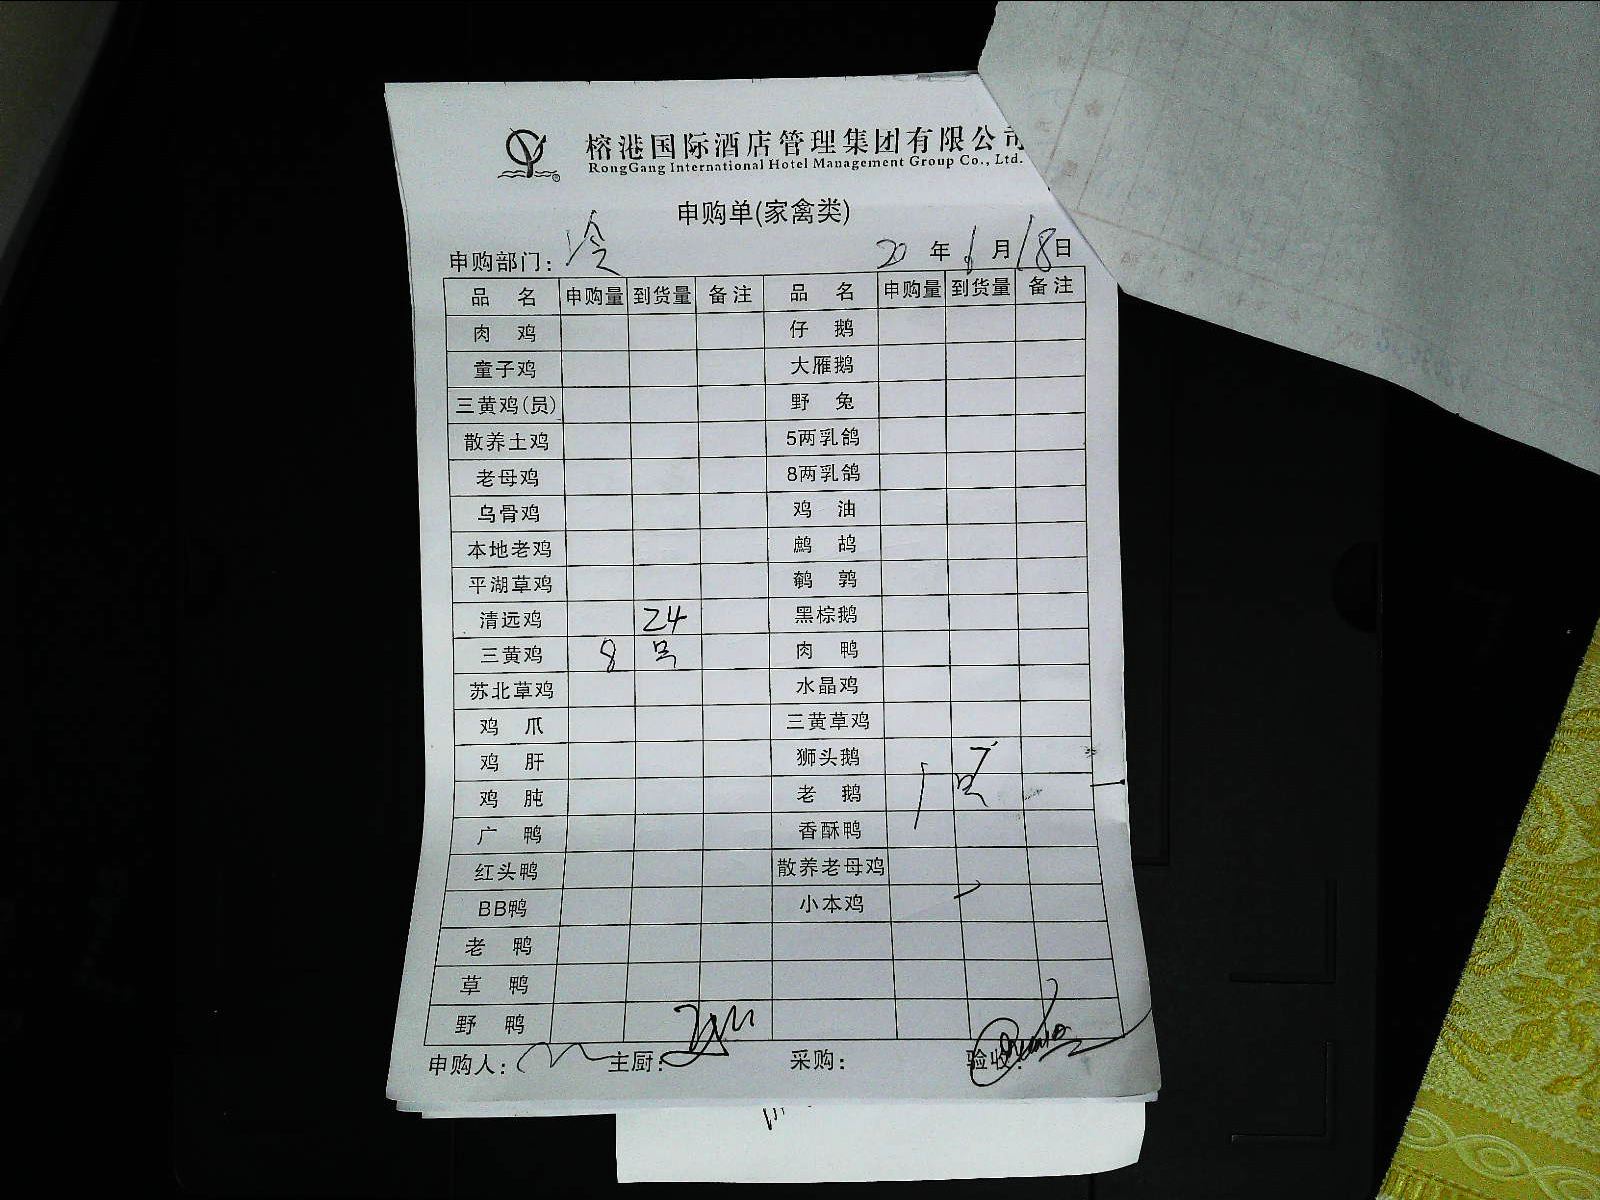 榕港国际酒店管理集团有限公司
RongGang International Hotel Management Group Co., Ltd.
申购单(家禽类)
申购部门: 冷 20 年 6 月 18 日
品 名 申购量 到货量 备注 品 名 申购量 到货量 备注
肉 鸡 仔 鹅
童子鸡 大雁鹅
三黄鸡(员) 野 兔
散养土鸡 5两乳鸽
老母鸡 8两乳鸽
乌骨鸡 鸡 油
本地老鸡 鹧 鸪
平湖草鸡 鹌 鹑
清远鸡 24 黑棕鹅
三黄鸡 8 只 肉 鸭
苏北草鸡 水晶鸡
鸡 爪 三黄草鸡
鸡 肝 狮头鹅
鸡 肫 老 鹅 只
广 鸭 香酥鸭
红头鸭 散养老母鸡
BB鸭 小本鸡
老 鸭
草 鸭
野 鸭
申购人: 主厨: 采购: 验收: